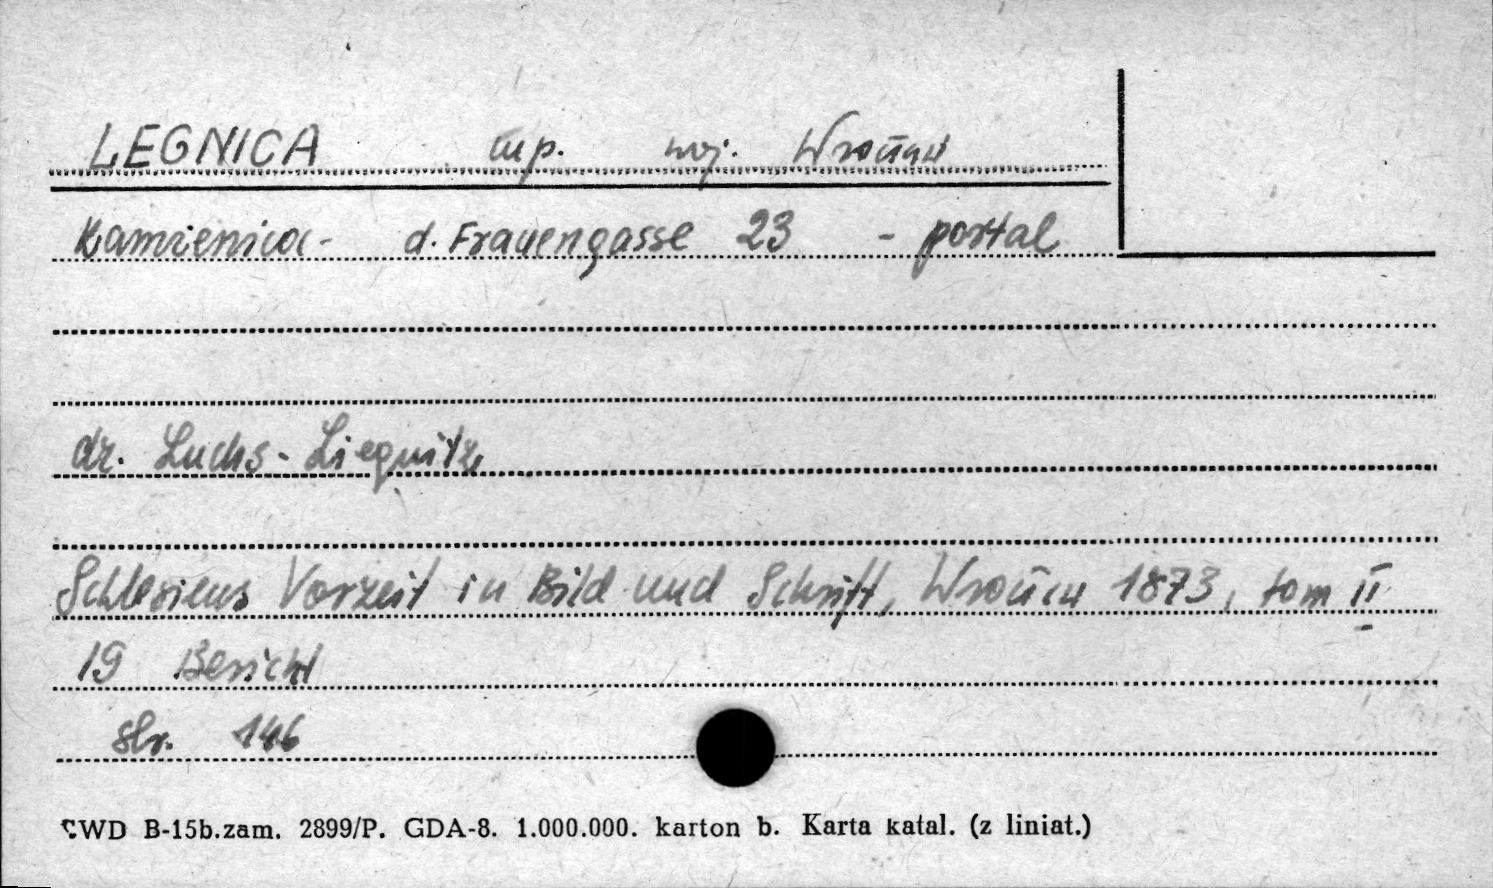 LEGNICA mp. woj. Wrocław
Kamienica - d. Frauengasse 23 - portal
dr. Luchs - Liegnitz
Schlesiens Vorzeit in Bild und Schrift, Wrocław 1873, tom II
19 Bericht
str. 146
CWD B-15b.zam. 2899/P. GDA-8. 1.000.000. karton b. Karta katal. (z liniat.)